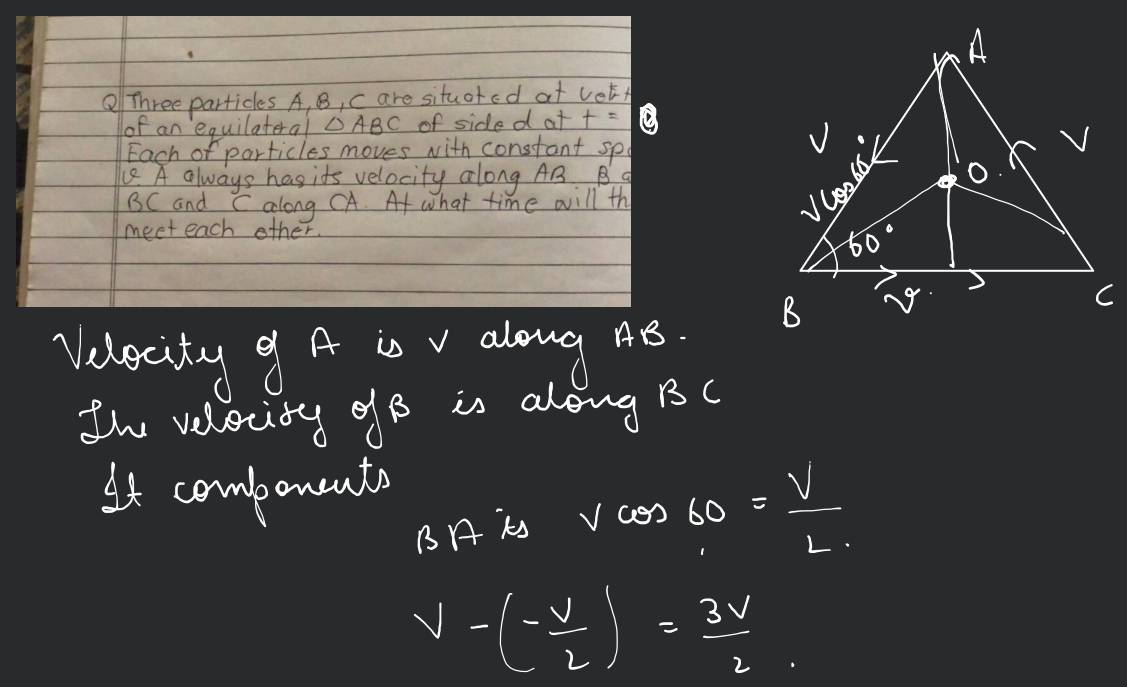 Q Three particles A, B, C are situated at
of an equilateral △ ABC of side d at t =
Each of particles moves with constant
v. A always has its velocity along AB B
BC and C along CA. At what time will
meet each other.
A
V
V
V cos 60°
O.
60°
B
v.
C
Velocity of A is v along AB.
The velocity of B is along BC
It components
BA is V cos 60 = V/2.
V - (-V/2) = 3V/2.